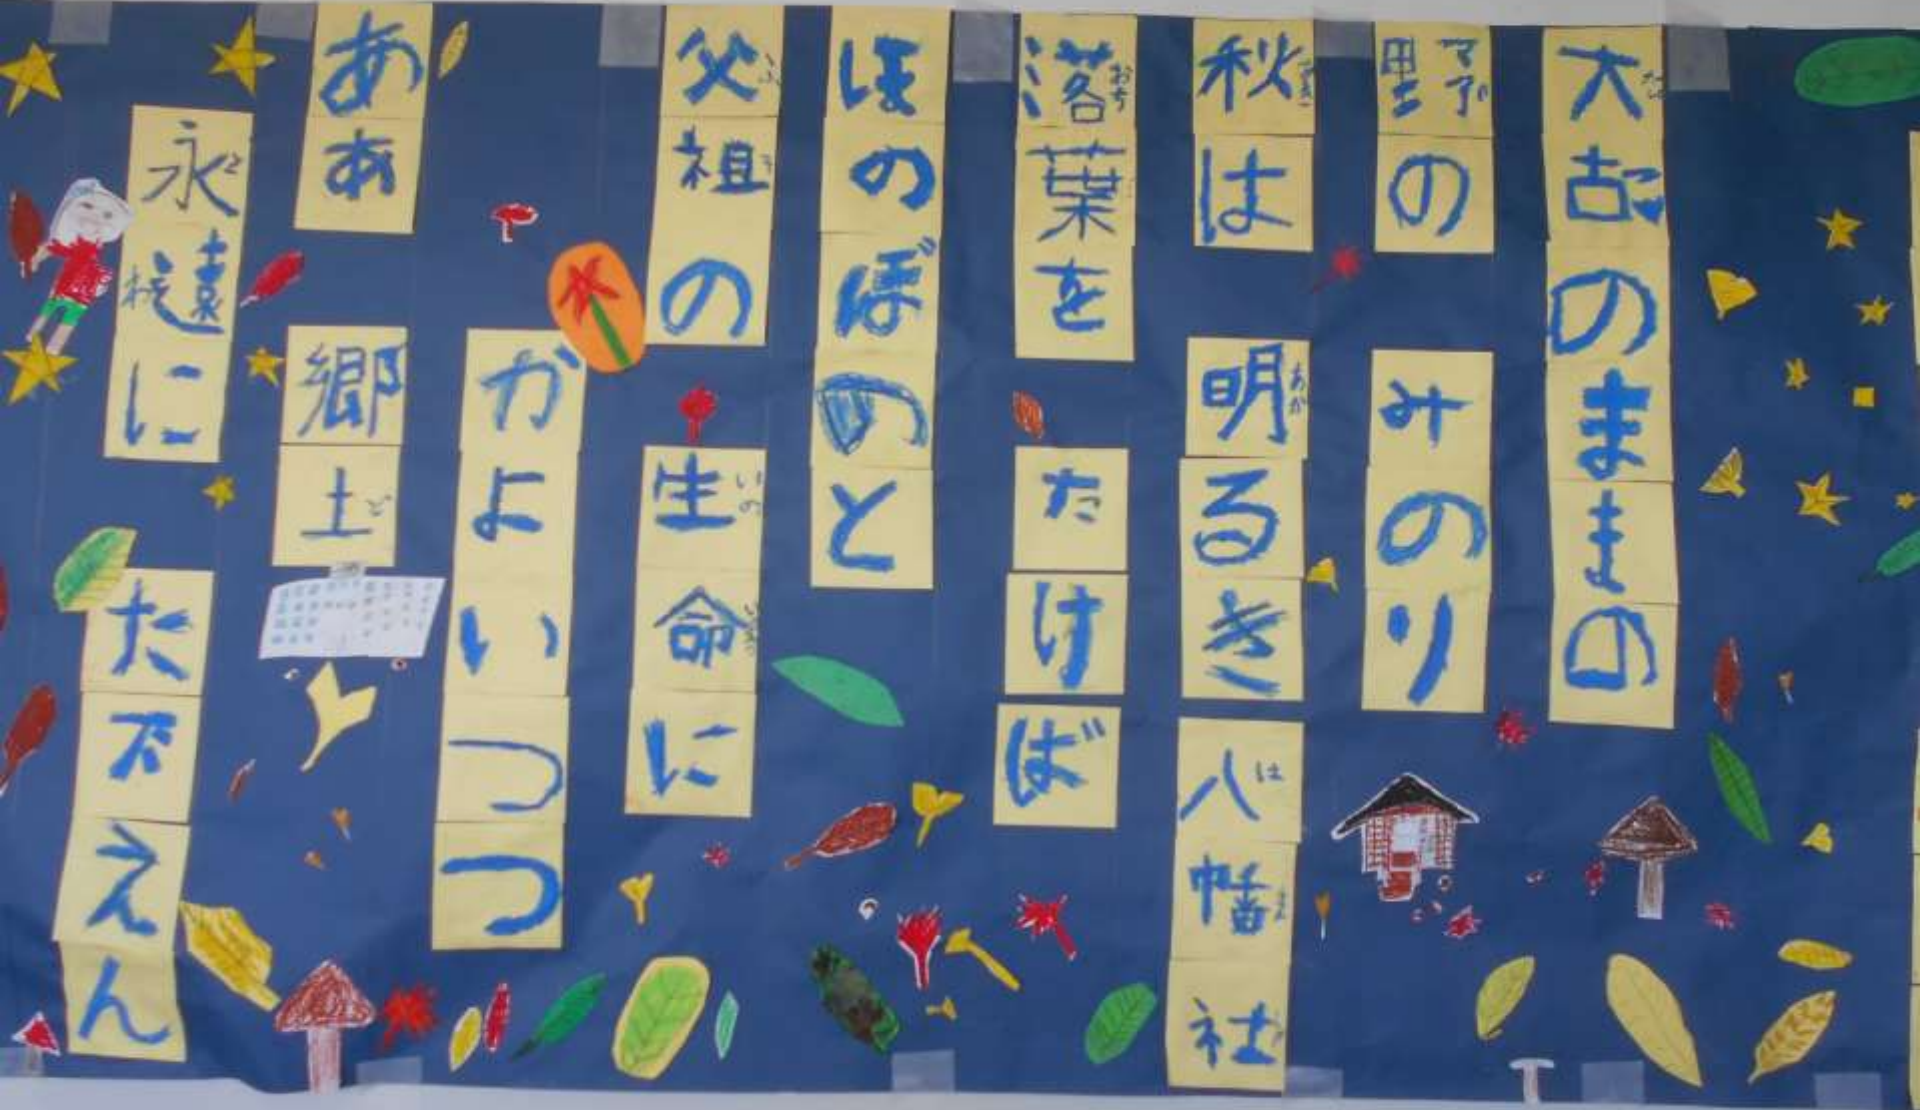 太古のままの
野の みのり
秋は 明るき 八幡社
落葉を たけば
ほのぼのと
父祖の 生命に
かよいつつ
あゝ 郷土
永遠に たたえん